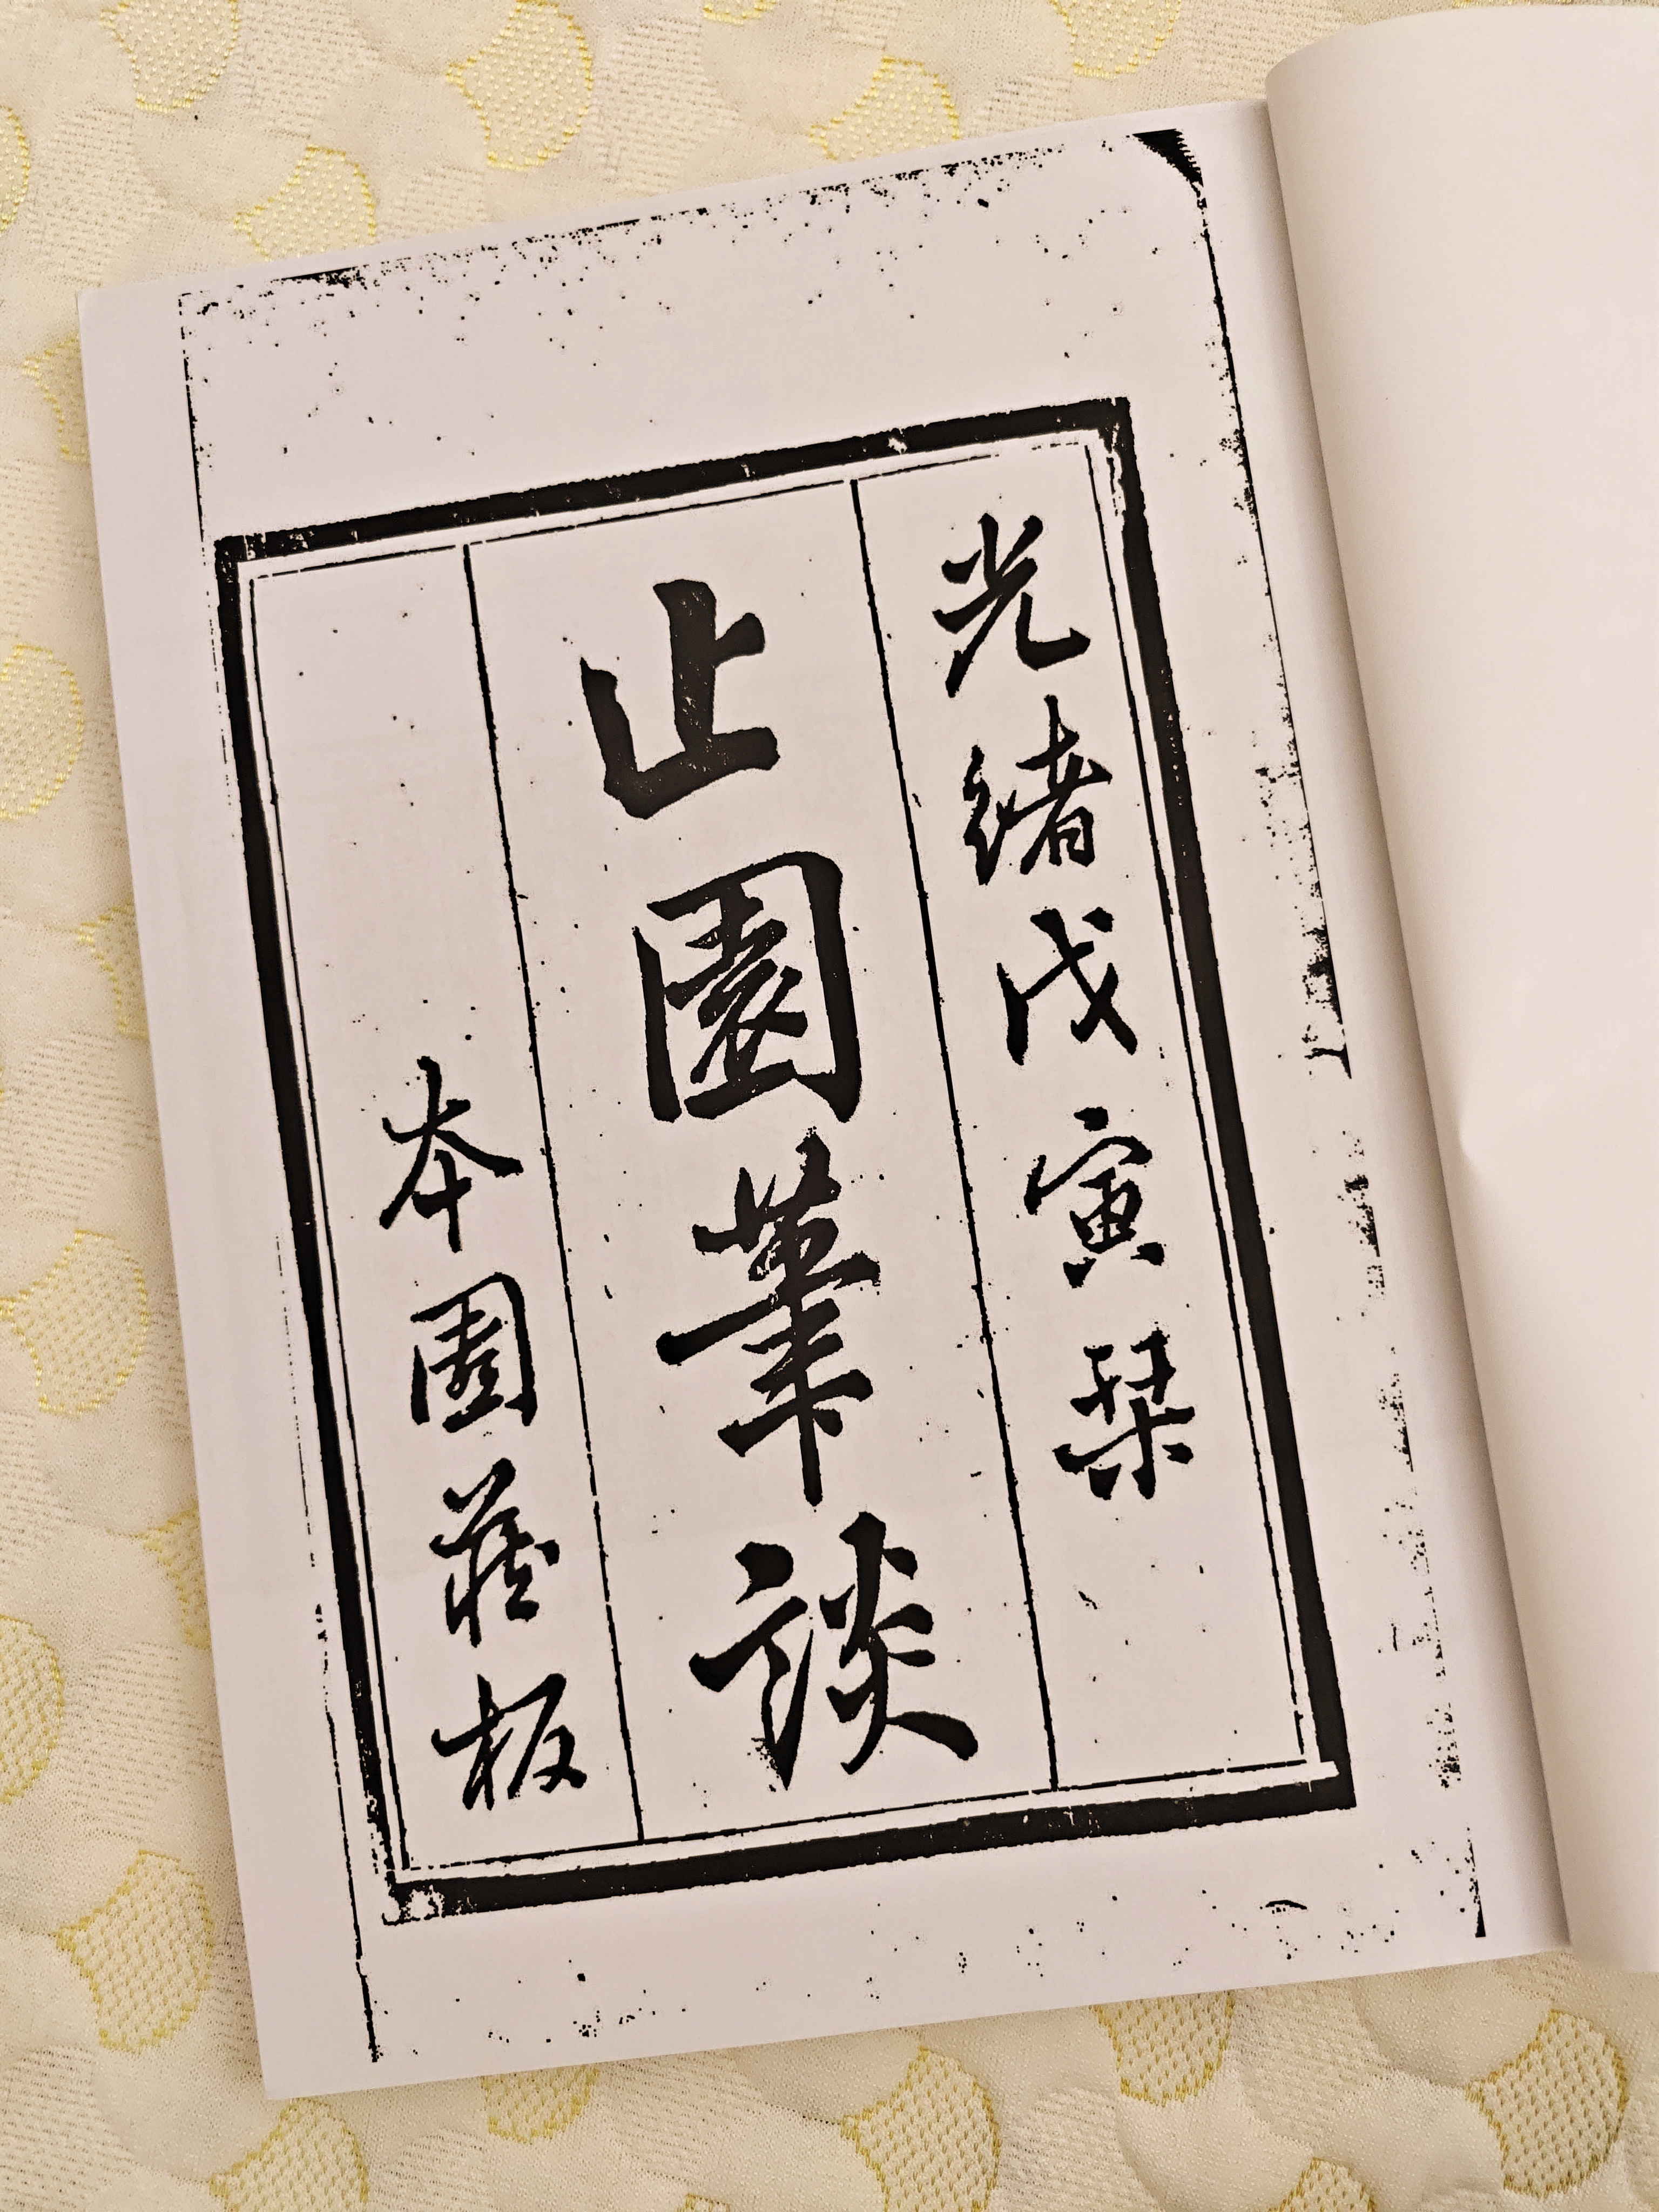 光緒戊寅栞
止園筆談
本園藏板